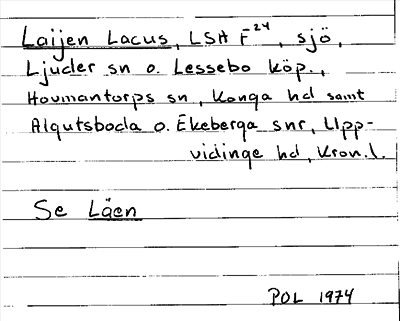 Laijen Lacus, LSA F²⁴, sjö,
Ljuder sn o. Lessebo köp.,
Hovmantorps sn, Konga hd samt
Algutsboda o. Ekeberga snr, Upp-
vidinge hd, Kron. l.
Se Läen
POL 1974